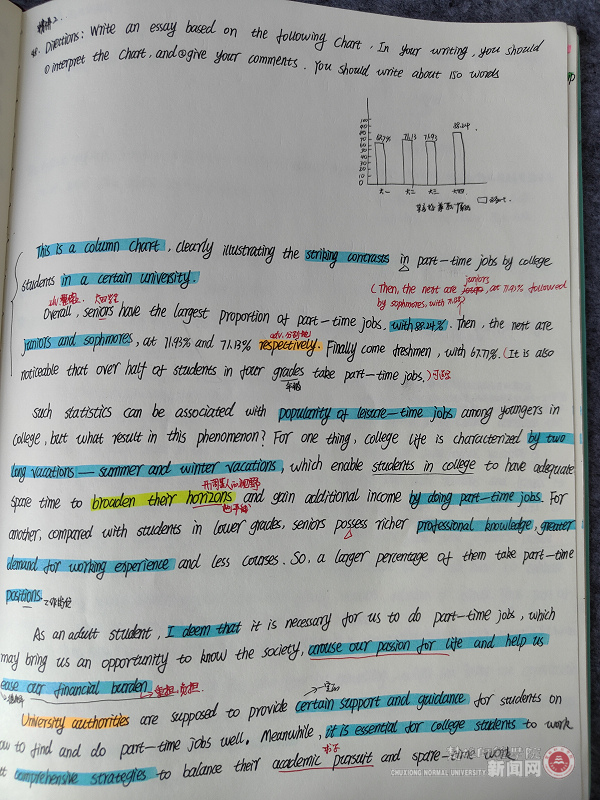 Directions: Write an essay based on the following chart. In your writing, you should
①interpret the chart, and ②give your comments. You should write about 150 words
100
90
80
70
60
50
40
30
20
10
0
67.77%
71.13
71.93
88.24
大一
大二
大三
大四
This is a column chart, clearly illustrating the striking contrasts in part-time jobs by college
students in a certain university.
(Then, the next are juniors, at 71.93% followed
by sophmores, with 71.13%)
大四学生
Overall, seniors have the largest proportion of part-time jobs, with 88.24%. Then, the next are
adv. 分别地
juniors and sophmores, at 71.93% and 71.13% respectively. Finally come freshmen, with 67.77%. (It is also
noticeable that over half of students in four grades take part-time jobs.)可忘
年级
Such statistics can be associated with popularity of leisure-time jobs among youngers in
college, but what result in this phenomenon? For one thing, college life is characterized by two
long vacations — summer and winter vacations, which enable students in college to have adequate
开阔某人的视野
spare time to broaden their horizons and gain additional income by doing part-time jobs. For
地平线
another, compared with students in lower grades, seniors possess richer professional knowledge, greater
demand for working experience and less courses. So, a larger percentage of them take part-time
positions.
工作岗位
As an adult student, I deem that it is necessary for us to do part-time jobs, which
may bring us an opportunity to know the society, arouse our passion for life and help us
ease our financial burden
重担,负担.
University authorities are supposed to provide certain support and guidance for students on
how to find and do part-time jobs well. Meanwhile, it is essential for college students to work
comprehensive strategies to balance their academic pursuit and spare-time work
CHUXIONG NORMAL UNIVERSITY
新闻网